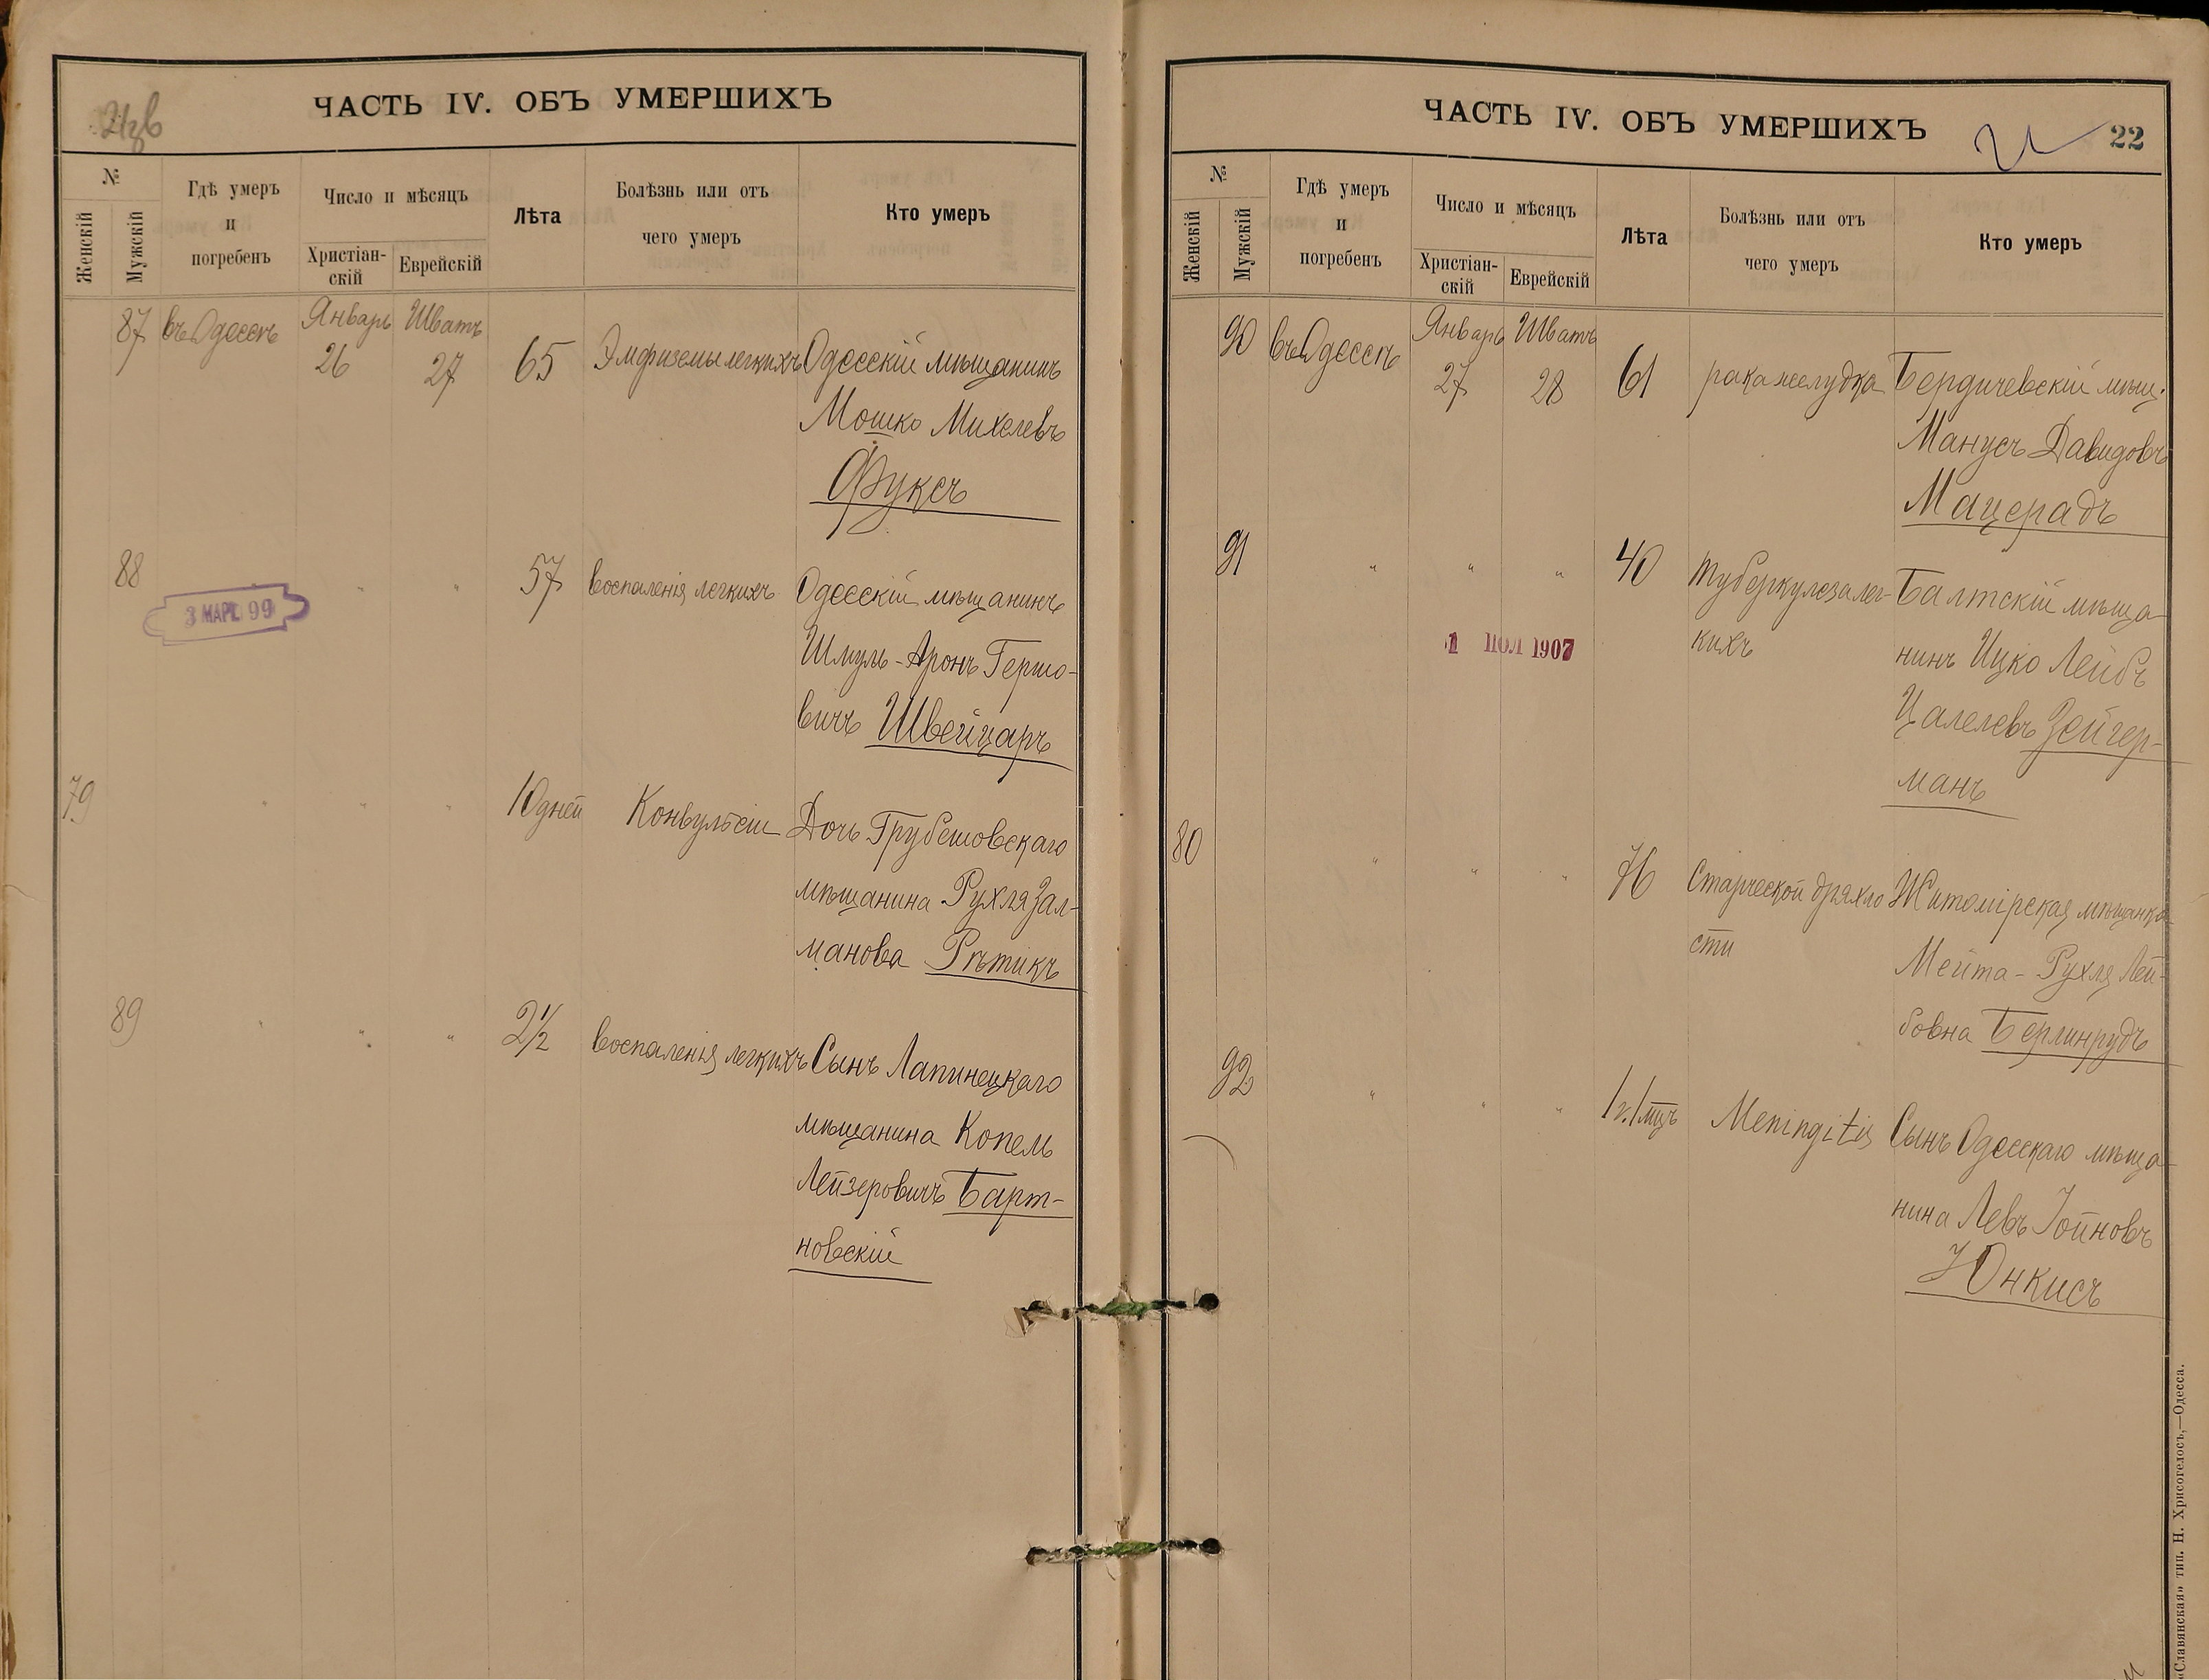 21зв
ЧАСТЬ IV. ОБЪ УМЕРШИХЪ
№
Женскій
Мужскій
Гдѣ умеръ
и
погребенъ
Число и мѣсяцъ
Христіан-
скій
Еврейскій
Лѣта
Болѣзнь или отъ
чего умеръ
Кто умеръ
87 въ Одессѣ Январь 26 Шватъ 27 65 Эмфиземы легкихъ Одесскій мѣщанинъ
Мошко Михелевъ
Фуксъ
88 " " 57 воспаленія легкихъ Одесскій мѣщанинъ
Шмуль-Аронъ Гершо-
вичъ Швейцаръ
3 МАРТ. 99
79 " " " 10 дней Конвульсіи Дочь Грубешовскаго
мѣщанина Рухля Зал-
манова Рѣтикъ
89 " " " 2½ воспаленія легкихъ Сынъ Лапинецкаго
мѣщанина Копель
Лейзеровичъ Барт-
новскій
ЧАСТЬ IV. ОБЪ УМЕРШИХЪ
22
№
Женскій
Мужскій
Гдѣ умеръ
и
погребенъ
Число и мѣсяцъ
Христіан-
скій
Еврейскій
Лѣта
Болѣзнь или отъ
чего умеръ
Кто умеръ
90 въ Одессѣ Январь 27 Шватъ 28 61 рака желудка Бердичевскій мѣщ.
Манусъ Давидовъ
Мацерадъ
91 " " " 40 туберкулеза лег- Балтскій мѣща-
кихъ нинъ Ицко Лейбъ
Цалелевъ Зейгер-
манъ
1 ІЮЛ 1907
80 " " " 76 Старческой дряхло Житомірская мѣщанка
сти Мейта-Рухля Лей-
бовна Берлинрудъ
92 " " " 1 г. 1 мцъ Meningitis Сынъ Одесскаго мѣща-
нина Левъ Іойновъ
Юнкисъ
«Славянская» тип. Н. Хрисогелосъ,—Одесса.